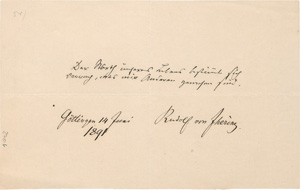 Der Werth unseres Lebens bestimmt sich
darnach, was wir Anderen gewesen sind.
Göttingen 14 Juni Rudolf von Jhering
1891